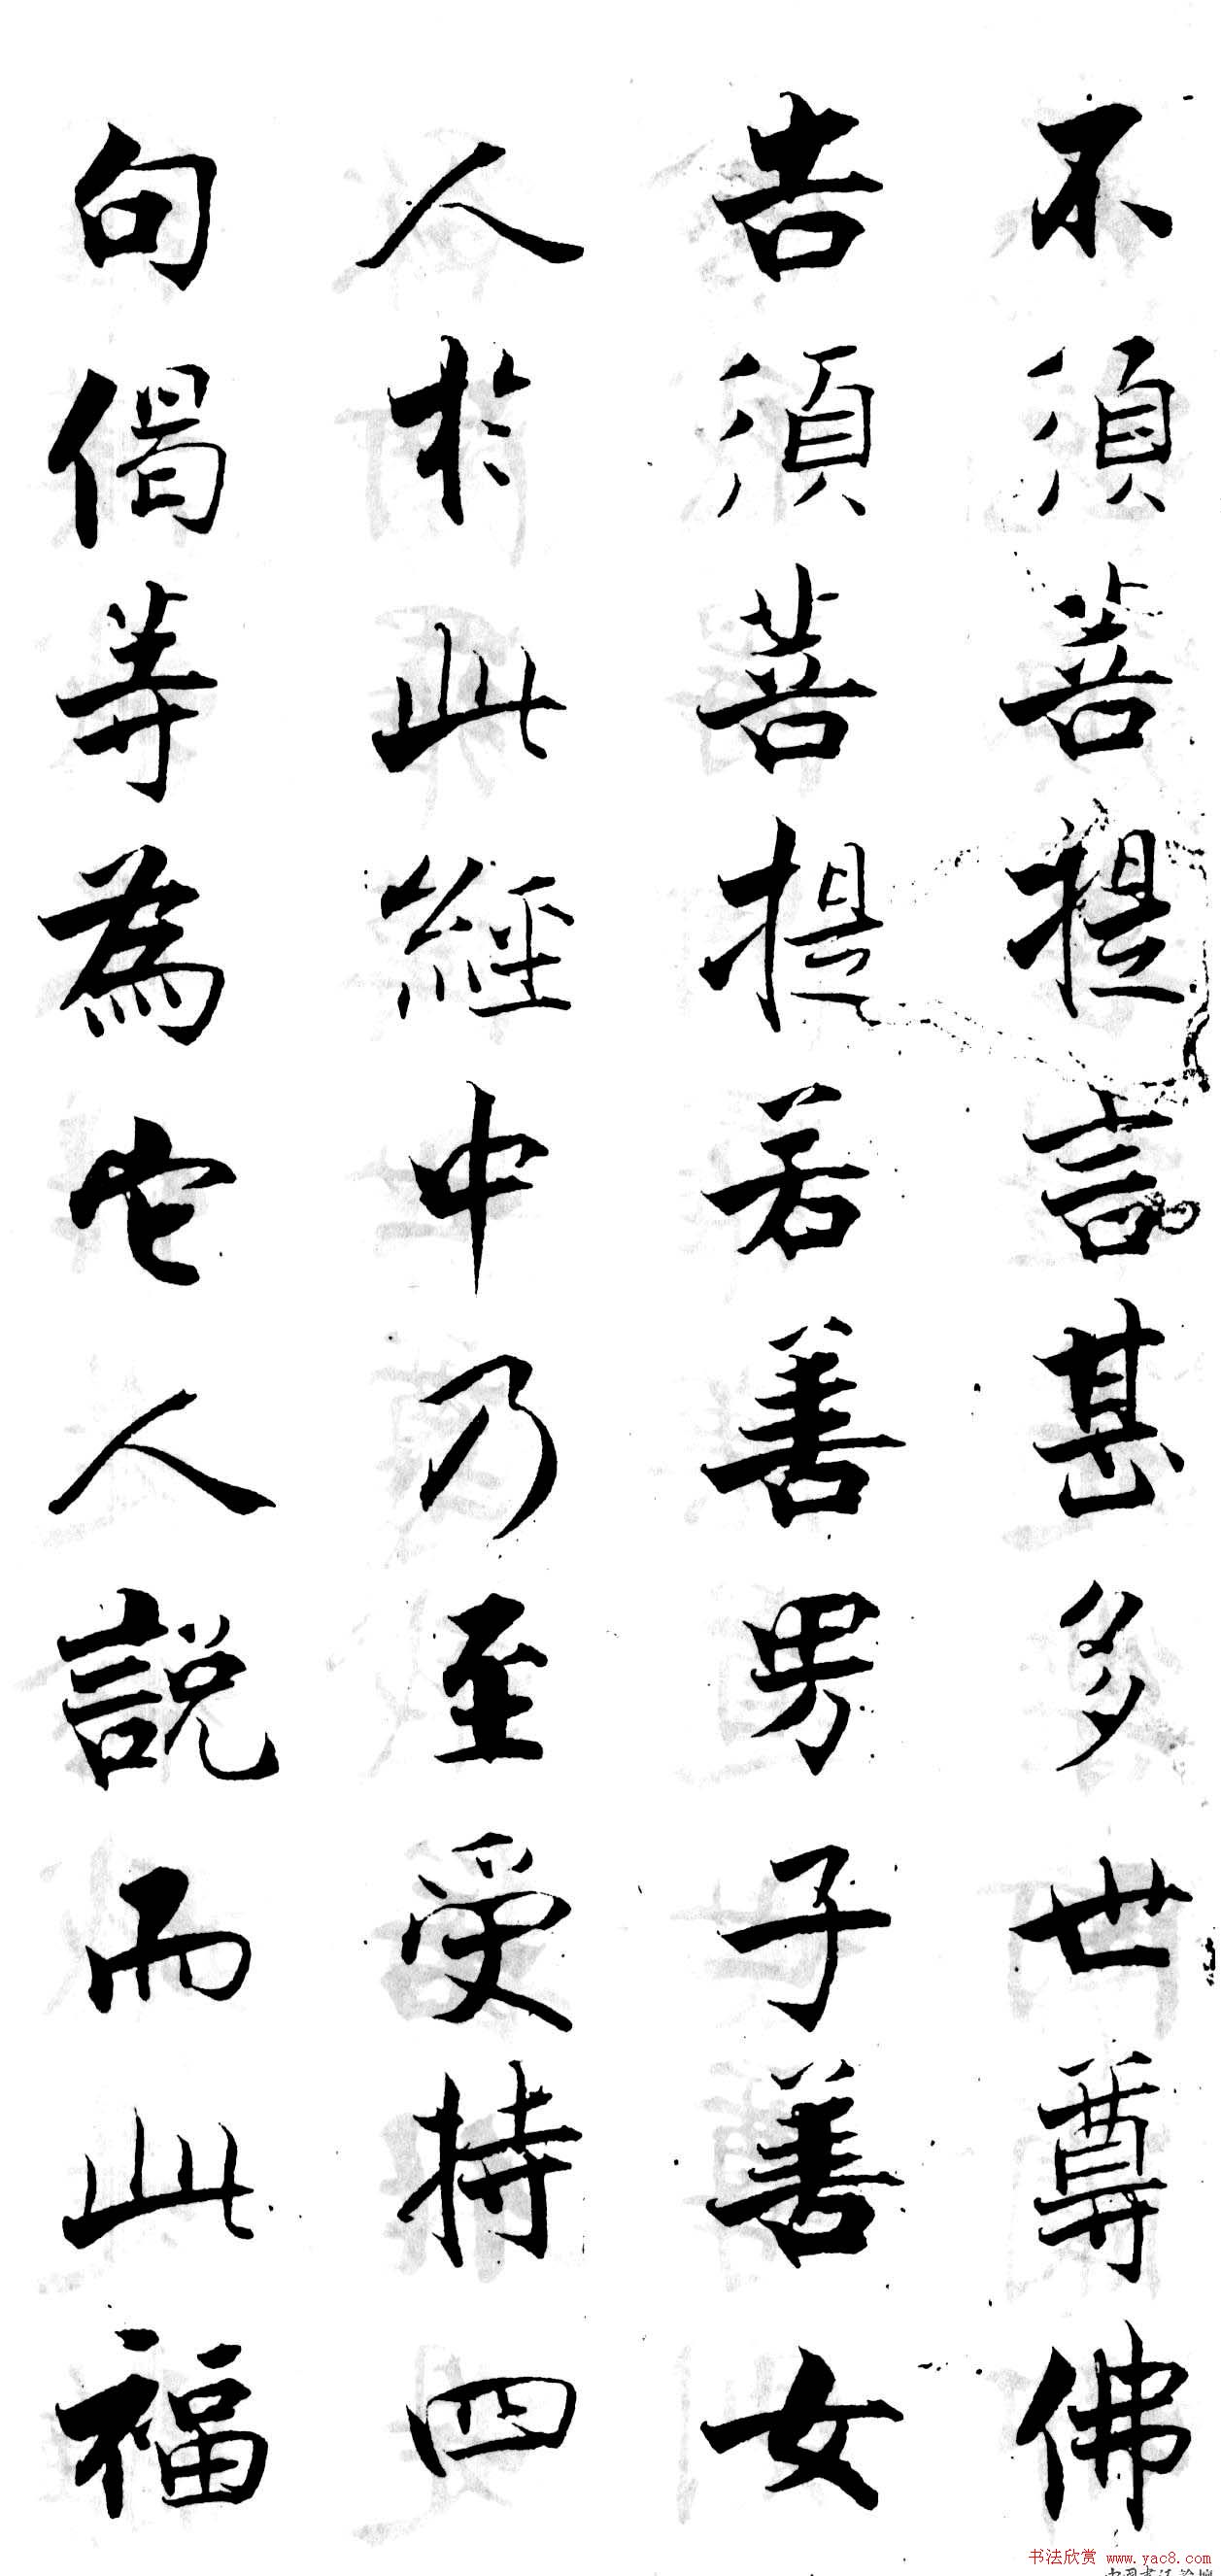 不須菩提言甚多世尊佛
告須菩提若善男子善女
人於此經中乃至受持四
句偈等為它人說而此福
书法欣赏 www.yac8.com